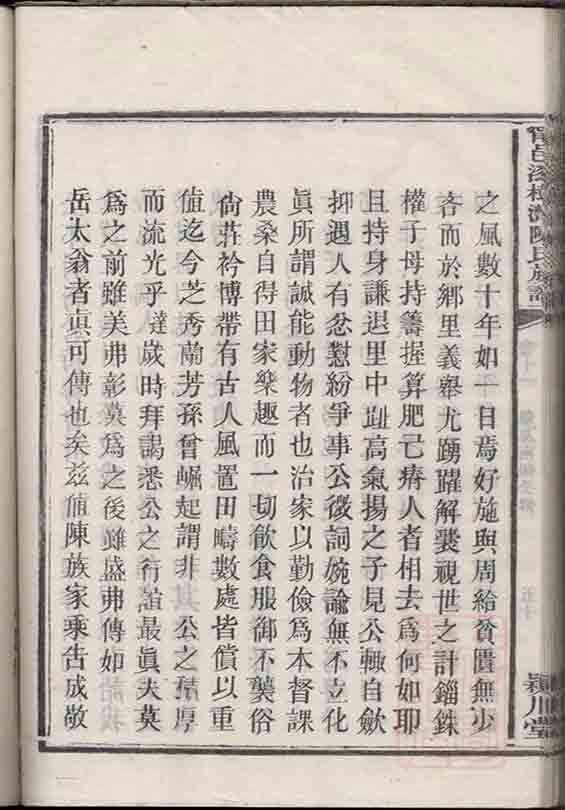 之風數十年如一日焉好施與周給貧匱無少
吝而於鄉里義舉尤踴躍解裝視世之計錙銖
權子母持籌握算肥己瘠人者相去為何如耶
且持身謙退里中趾高氣揚之子見公輒自歛
抑遇人有忿懟紛爭事公微詞婉諭無不立化
眞所謂誠能動物者也治家以勤儉為本督課
農桑自得田家樂趣而一切飲食服御不襲俗
尙莊衿博帶有古人風置田疇數處皆償以重
值迄今芝秀蘭芳孫曾崛起謂非 公之積厚
而流光乎 歲時拜謁悉公之行誼最眞夫莫
爲之前雖美弗彰莫爲之後雖盛弗傳如
岳太翁者眞可傳也矣玆值陳族家乘告成敬
陳氏族譜
潁川堂